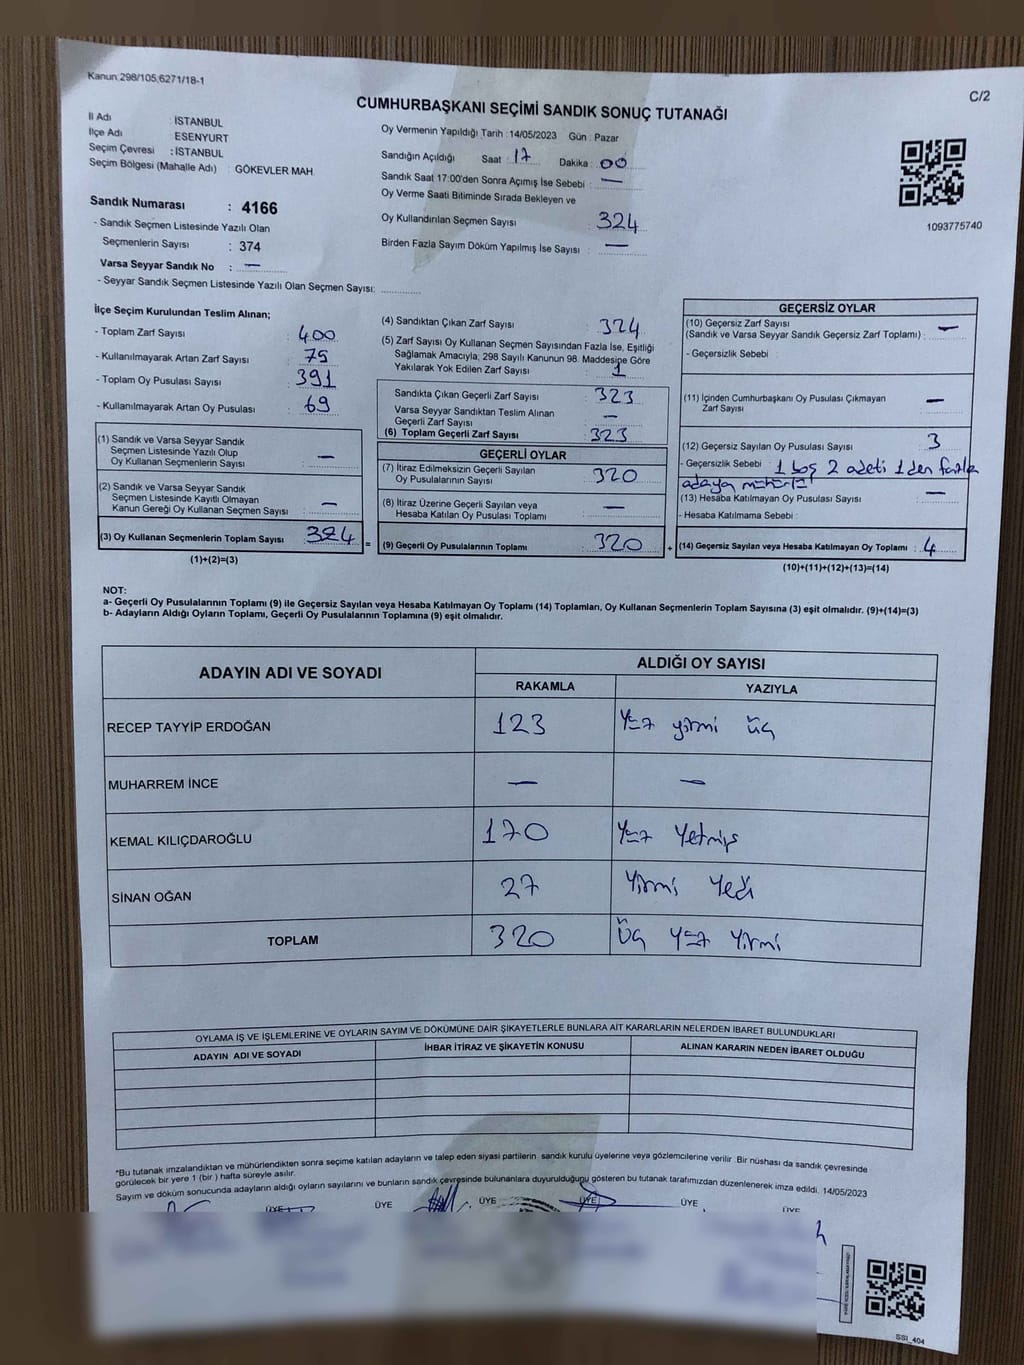 Kanun:298/105,6271/18-1
C/2
CUMHURBAŞKANI SEÇİMİ SANDIK SONUÇ TUTANAĞI
İl Adı : İSTANBUL
İlçe Adı : ESENYURT
Seçim Çevresi : İSTANBUL
Seçim Bölgesi (Mahalle Adı) : GÖKEVLER MAH.
Sandık Numarası : 4166
- Sandık Seçmen Listesinde Yazılı Olan
Seçmenlerin Sayısı : 374
Varsa Seyyar Sandık No : —
- Seyyar Sandık Seçmen Listesinde Yazılı Olan Seçmen Sayısı:
Oy Vermenin Yapıldığı Tarih : 14/05/2023 Gün : Pazar
Sandığın Açıldığı Saat : 17 Dakika : 00
Sandık Saat 17:00'den Sonra Açımış İse Sebebi : —
Oy Verme Saati Bitiminde Sırada Bekleyen ve
Oy Kullandırılan Seçmen Sayısı : 324
Birden Fazla Sayım Döküm Yapılmış İse Sayısı : —
1093775740
İlçe Seçim Kurulundan Teslim Alınan;
- Toplam Zarf Sayısı : 400
- Kullanılmayarak Artan Zarf Sayısı : 75
- Toplam Oy Pusulası Sayısı : 391
- Kullanılmayarak Artan Oy Pusulası : 69
(1) Sandık ve Varsa Seyyar Sandık
Seçmen Listesinde Yazılı Olup
Oy Kullanan Seçmenlerin Sayısı : —
(2) Sandık ve Varsa Seyyar Sandık
Seçmen Listesinde Kayıtlı Olmayan
Kanun Gereği Oy Kullanan Seçmen Sayısı : —
(3) Oy Kullanan Seçmenlerin Toplam Sayısı : 324 =
(1)+(2)=(3)
(4) Sandıktan Çıkan Zarf Sayısı : 324
(5) Zarf Sayısı Oy Kullanan Seçmen Sayısından Fazla İse, Eşitliği
Sağlamak Amacıyla, 298 Sayılı Kanunun 98. Maddesine Göre
Yakılarak Yok Edilen Zarf Sayısı : 1
Sandıkta Çıkan Geçerli Zarf Sayısı : 323
Varsa Seyyar Sandıktan Teslim Alınan
Geçerli Zarf Sayısı : —
(6) Toplam Geçerli Zarf Sayısı : 323
GEÇERLİ OYLAR
(7) İtiraz Edilmeksizin Geçerli Sayılan
Oy Pusulalarının Sayısı : 320
(8) İtiraz Üzerine Geçerli Sayılan veya
Hesaba Katılan Oy Pusulası Toplamı : —
(9) Geçerli Oy Pusulalarının Toplamı : 320 +
GEÇERSİZ OYLAR
(10) Geçersiz Zarf Sayısı
(Sandık ve Varsa Seyyar Sandık Geçersiz Zarf Toplamı) : —
- Geçersizlik Sebebi :
(11) İçinden Cumhurbaşkanı Oy Pusulası Çıkmayan
Zarf Sayısı : —
(12) Geçersiz Sayılan Oy Pusulası Sayısı : 3
- Geçersizlik Sebebi : 1 boş 2 adeti 1 den fazla
adaya mühürlü
(13) Hesaba Katılmayan Oy Pusulası Sayısı : —
- Hesaba Katılmama Sebebi :
(14) Geçersiz Sayılan veya Hesaba Katılmayan Oy Toplamı : 4
(10)+(11)+(12)+(13)=(14)
NOT:
a- Geçerli Oy Pusulalarının Toplamı (9) ile Geçersiz Sayılan veya Hesaba Katılmayan Oy Toplamı (14) Toplamları, Oy Kullanan Seçmenlerin Toplam Sayısına (3) eşit olmalıdır. (9)+(14)=(3)
b- Adayların Aldığı Oyların Toplamı, Geçerli Oy Pusulalarının Toplamına (9) eşit olmalıdır.
ADAYIN ADI VE SOYADI ALDIĞI OY SAYISI
RAKAMLA YAZIYLA
RECEP TAYYİP ERDOĞAN 123 Yüz yirmi üç
MUHARREM İNCE — —
KEMAL KILIÇDAROĞLU 170 Yüz Yetmiş
SİNAN OĞAN 27 Yirmi Yedi
TOPLAM 320 Üç Yüz Yirmi
OYLAMA İŞ VE İŞLEMLERİNE VE OYLARIN SAYIM VE DÖKÜMÜNE DAİR ŞİKAYETLERLE BUNLARA AİT KARARLARIN NELERDEN İBARET BULUNDUKLARI
ADAYIN ADI VE SOYADI İHBAR İTİRAZ VE ŞİKAYETİN KONUSU ALINAN KARARIN NEDEN İBARET OLDUĞU
*Bu tutanak imzalandıktan ve mühürlendikten sonra seçime katılan adayların ve talep eden siyasi partilerin sandık kurulu üyelerine veya gözlemcilerine verilir. Bir nüshası da sandık çevresinde
görülecek bir yere 1 (bir) hafta süreyle asılır.
Sayım ve döküm sonucunda adayların aldığı oyların sayılarını ve bunların sandık çevresinde bulunanlara duyurulduğunu gösteren bu tutanak tarafımızdan düzenlenerek imza edildi. 14/05/2023
ÜYE ÜYE ÜYE ÜYE ÜYE ÜYE
SSI_404